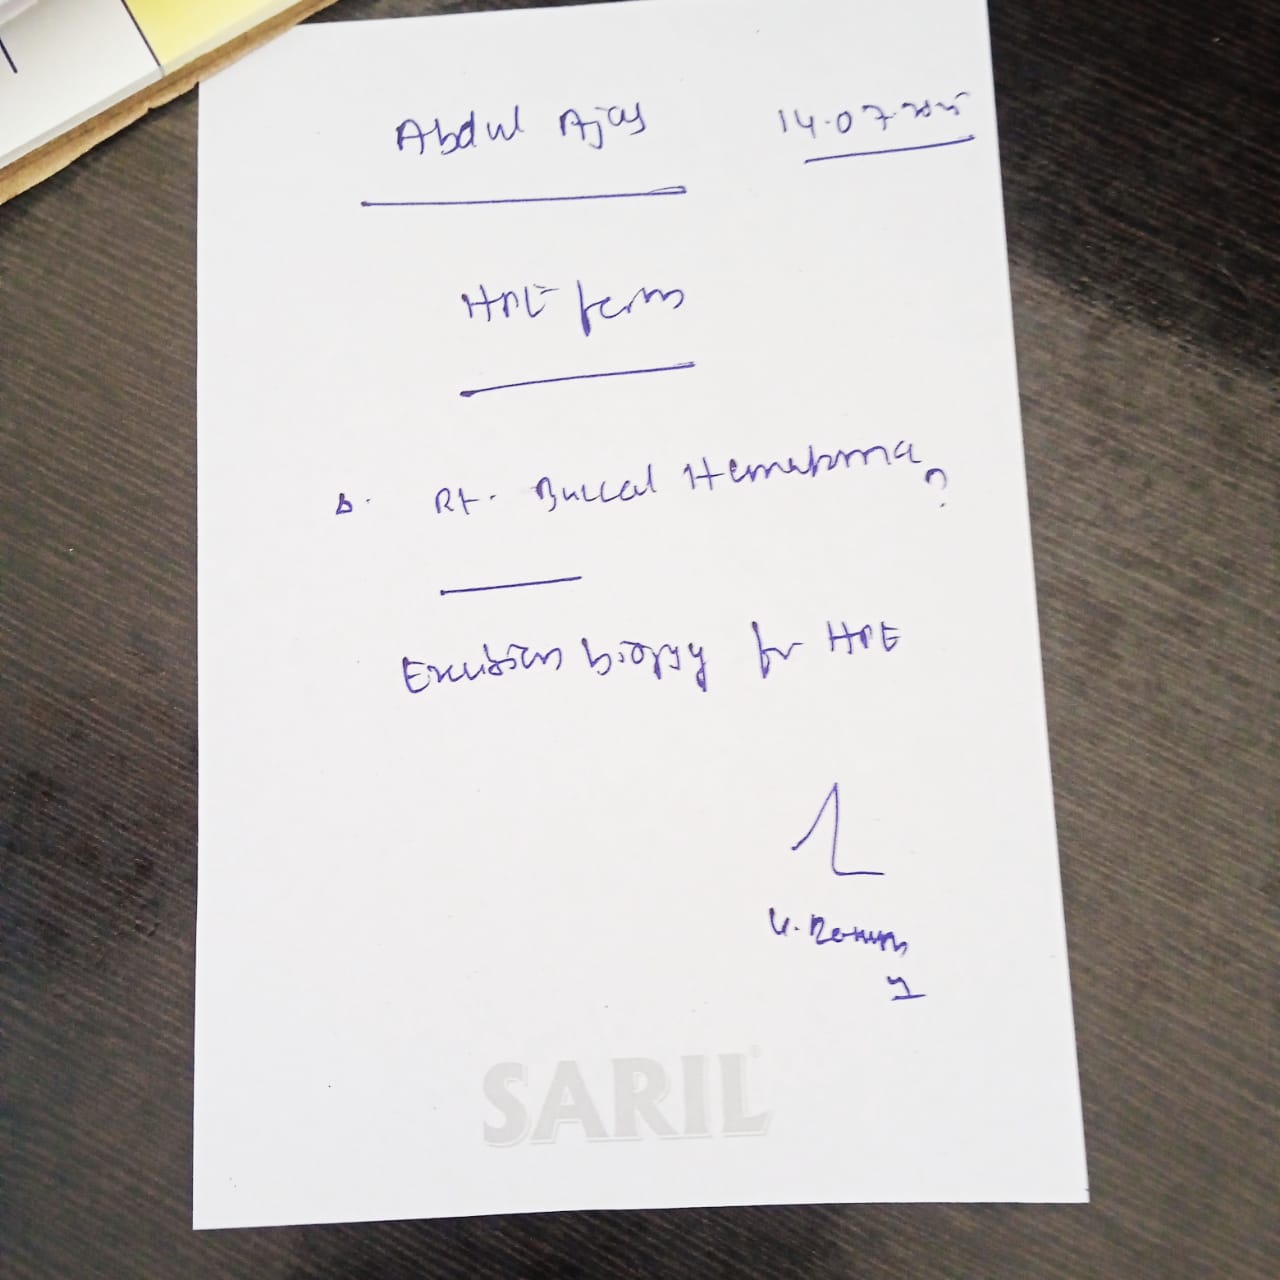 Abdul Ajas 14.07.2025
HPE form
Δ. Rt. Buccal Hematoma ?
Excision biopsy for HPE
SARIL